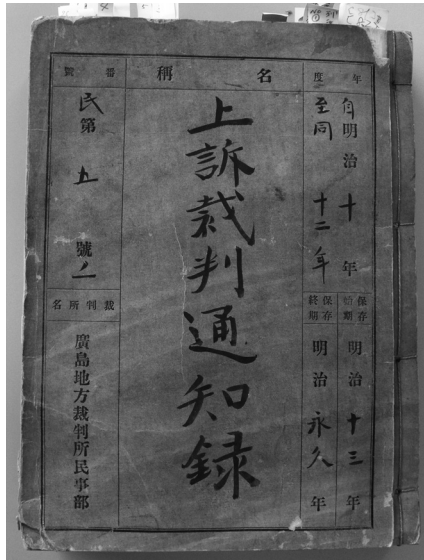 年度
自明治十年
至同十二年
保存始期
明治十三年
保存終期
明治永久年
名稱
上訴裁判通知録
番號
民第五號ノ
裁判所名
廣島地方裁判所民事部